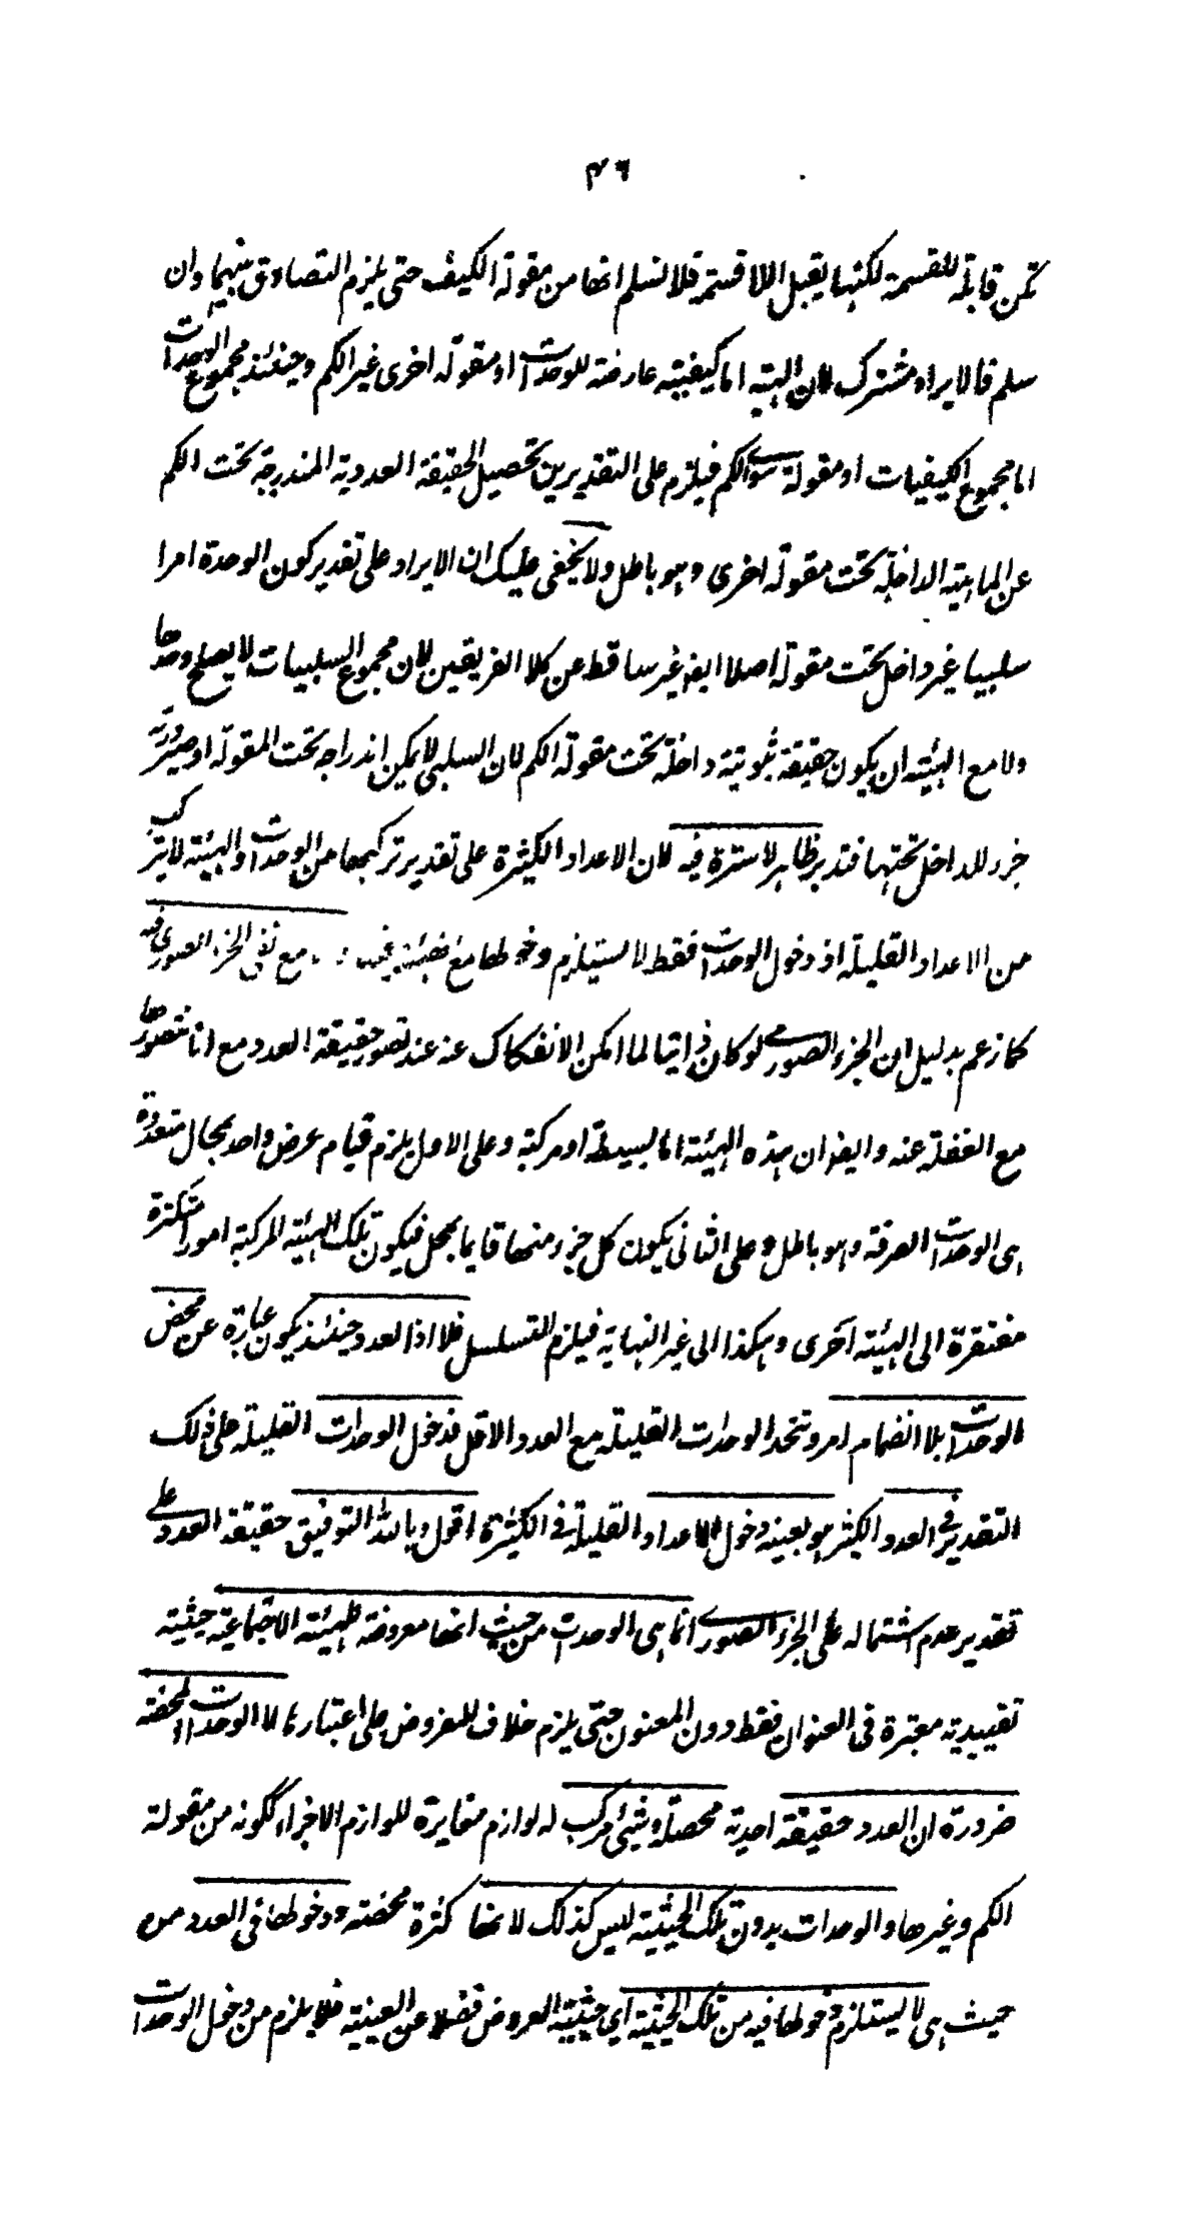 ٤٦
تكن قابلة للقسمة لكنها يقبل اللاقسمة فلا نسلم انها من مقولة الكيف حتى يلزم التصادق بينهما وان
سلم فالايراد مشترك لان الهيئة اما كيفية عارضة للوحدات او مقولة اخرى غير الكم وحينئذ مجموع الوحدات
اما مجموع الكيفيات او مقولة سوى الكم فيلزم على التقديرين تحصيل الحقيقة العددية المندرجة تحت الكم
عن الماهية الداخلة تحت مقولة اخرى وهو باطل ولا يخفى عليك ان الايراد على تقدير كون الوحدة امرا
سلبيا غير داخل تحت مقولة اصلا ايضا غير ساقط عن كلا الفريقين لان مجموع السلبيات لا يصلح وحدها
ولا مع الهيئة ان يكون حقيقة ثبوتية داخلة تحت مقولة الكم لان السلبي لا يمكن اندراجه تحت المقولة او صيرورته
جزء للداخل تحتها فتدبر ظاهر لا سترة فيه لان الاعداد الكثيرة على تقدير تركبها من الوحدات والهيئة لا يتركب
من الاعداد القليلة اذ دخول الوحدات فقط لا يستلزم دخولها مع هيئة مع نفى الجزء الصوري فيه
كما زعم بدليل ان الجزء الصوري لو كان ذاتيا لما امكن الانفكاك عنه عند تصور حقيقة العدد مع انا نتصورها
مع الغفلة عنه وايضا ان هذه الهيئة اما بسيطة او مركبة وعلى الاول يلزم قيام عرض واحد بمحال متعددة
هى الوحدات الصرفة وهو باطل وعلى الثانى يكون كل جزء منها قايما بمحل فيكون تلك الهيئة المركبة امورا متكثرة
مفتقرة الى الهيئة اخرى وهكذا الى غير النهاية فيلزم التسلسل فلا اذا العدد حينئذ يكون عبارة عن محض
الوحدات بلا انضمام امر وتتحد الوحدات القليلة مع العدد الاقل فدخول الوحدات القليلة على ذلك
التقدير فى العدد الكثير هو بعينه دخول الاعداد القليلة فى الكثيرة اقول وبالله التوفيق حقيقة العدد على
تقدير عدم اشتماله على الجزء الصوري انما هى الوحدات من حيث انها معروضة للهيئة الاجتماعية حيثية
تقييدية معتبرة فى العنوان فقط دون المعنون حتى يلزم خلاف المفروض على اعتبارها لا الوحدات المحضة
ضرورة ان العدد حقيقة احدية محصلة وشئ مركب له لوازم مغايرة للوازم الاجزاء ككونه من مقولة
الكم وغيرها والوحدات بدون تلك الحيثية ليس كذلك لانها كثرة محضة ودخولها فى العدد من
حيث هى لا يستلزم دخولها فيه من تلك الحيثية اى حيثية العروض فضلا عن العينية فلا يلزم من دخول الوحدات